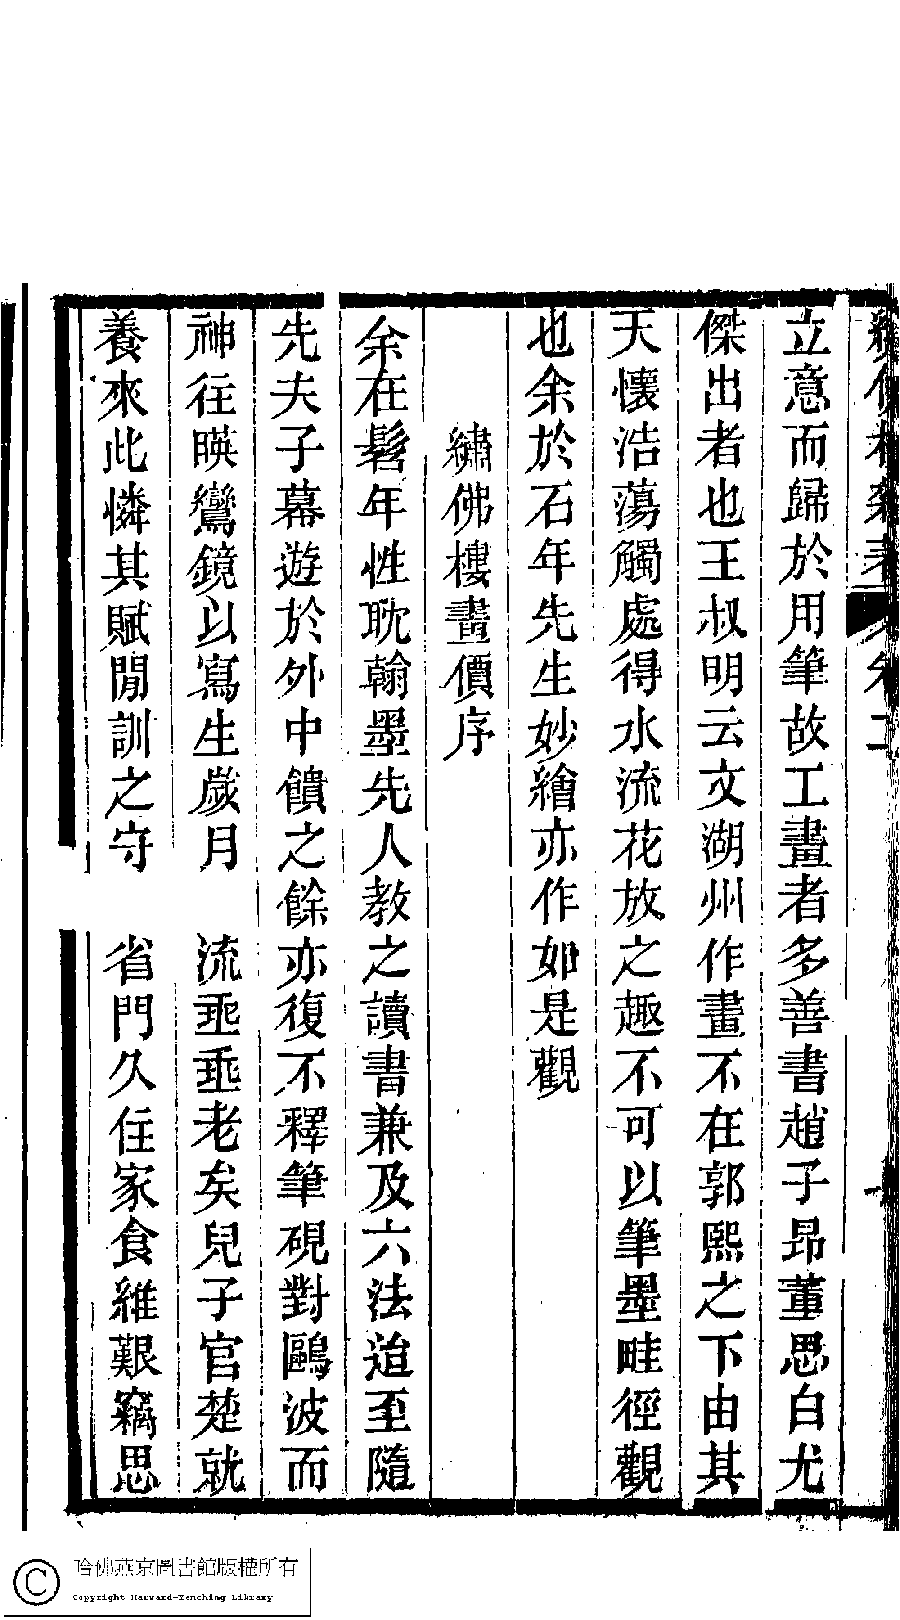 立意而歸於用筆故工畫者多善書趙子昂董思白尤
傑出者也王叔明云文湖州作畫不在郭熙之下由其
天懷浩蕩觸處得水流花放之趣不可以筆墨畦徑觀
也余於石年先生妙繪亦作如是觀
繡佛樓畫價序
余在髫年性耽翰墨先人教之讀書兼及六法迨至隨
先夫子幕遊於外中饋之餘亦復不釋筆硯對鷗波而
神往暎鸞鏡以寫生歲月流乖乖老矣兒子官楚就
養來此憐其賦閒訓之守省門久住家食維艱竊思
哈佛燕京圖書館版權所有
Copyright Harvard-Yenching Library